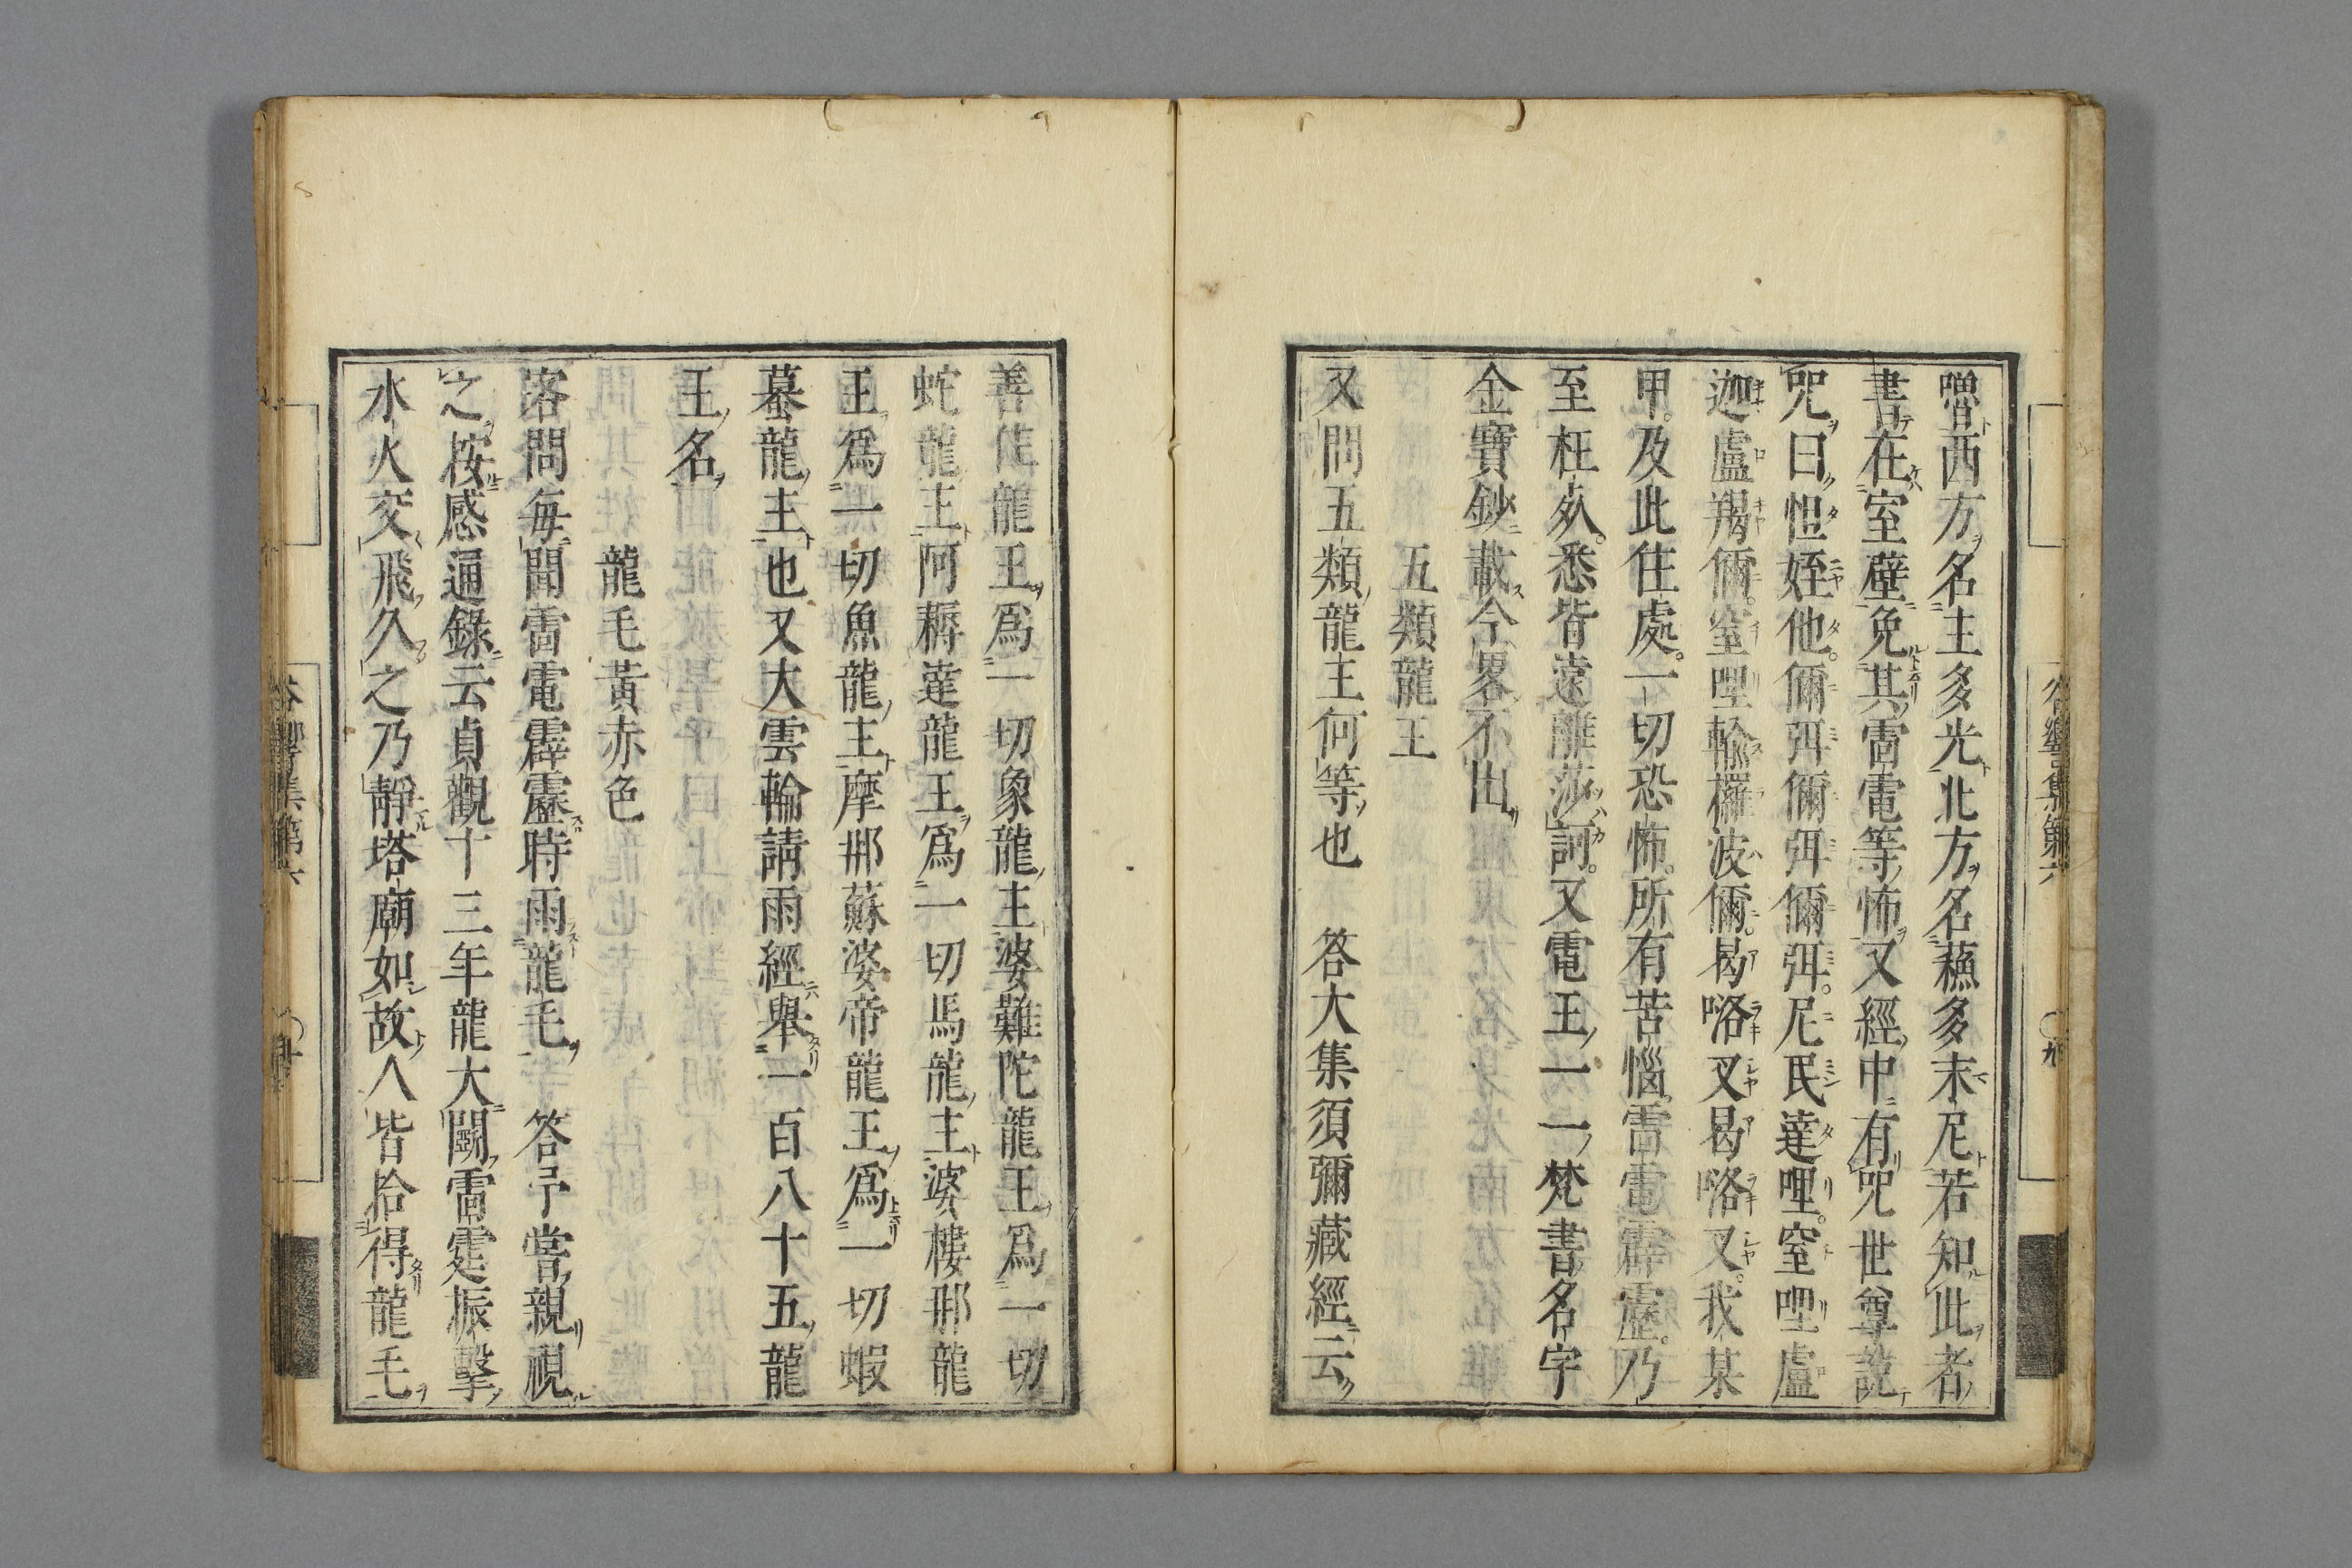 噜西方名主多光北方名蘓多末尼若知此者
書在室壁免其雷電等怖又經中有咒世尊說
咒曰怛姪他儞弭儞弭儞弭尼民達哩窒哩盧
迦盧羯儞窒哩輸欏波儞曷咯叉曷咯叉我某
甲及此住處一切恐怖所有苦惱雷電霹靂乃
至枉死悉皆遠離莎訶又電王一一梵書名字
金寶鈔載今畧不出
五類龍王
又問五類龍王何等也　答大集須彌藏經云
善住龍王爲一切象龍主婆難陀龍王爲一切
蛇龍王阿耨達龍王爲一切馬龍主婆樓那龍
王爲一切魚龍主摩那蘇婆帝龍王爲一切蝦
蟇龍主也又大雲輪請雨經舉一百八十五龍
王名
龍毛黃赤色
客問每聞雷電霹靂時雨龍毛　答予嘗親視
之按感通錄云貞觀十三年龍大鬭雷霆振擊
水火交飛久之乃靜塔廟如故人皆拾得龍毛
谷響集第六　九
谷響集第六　十